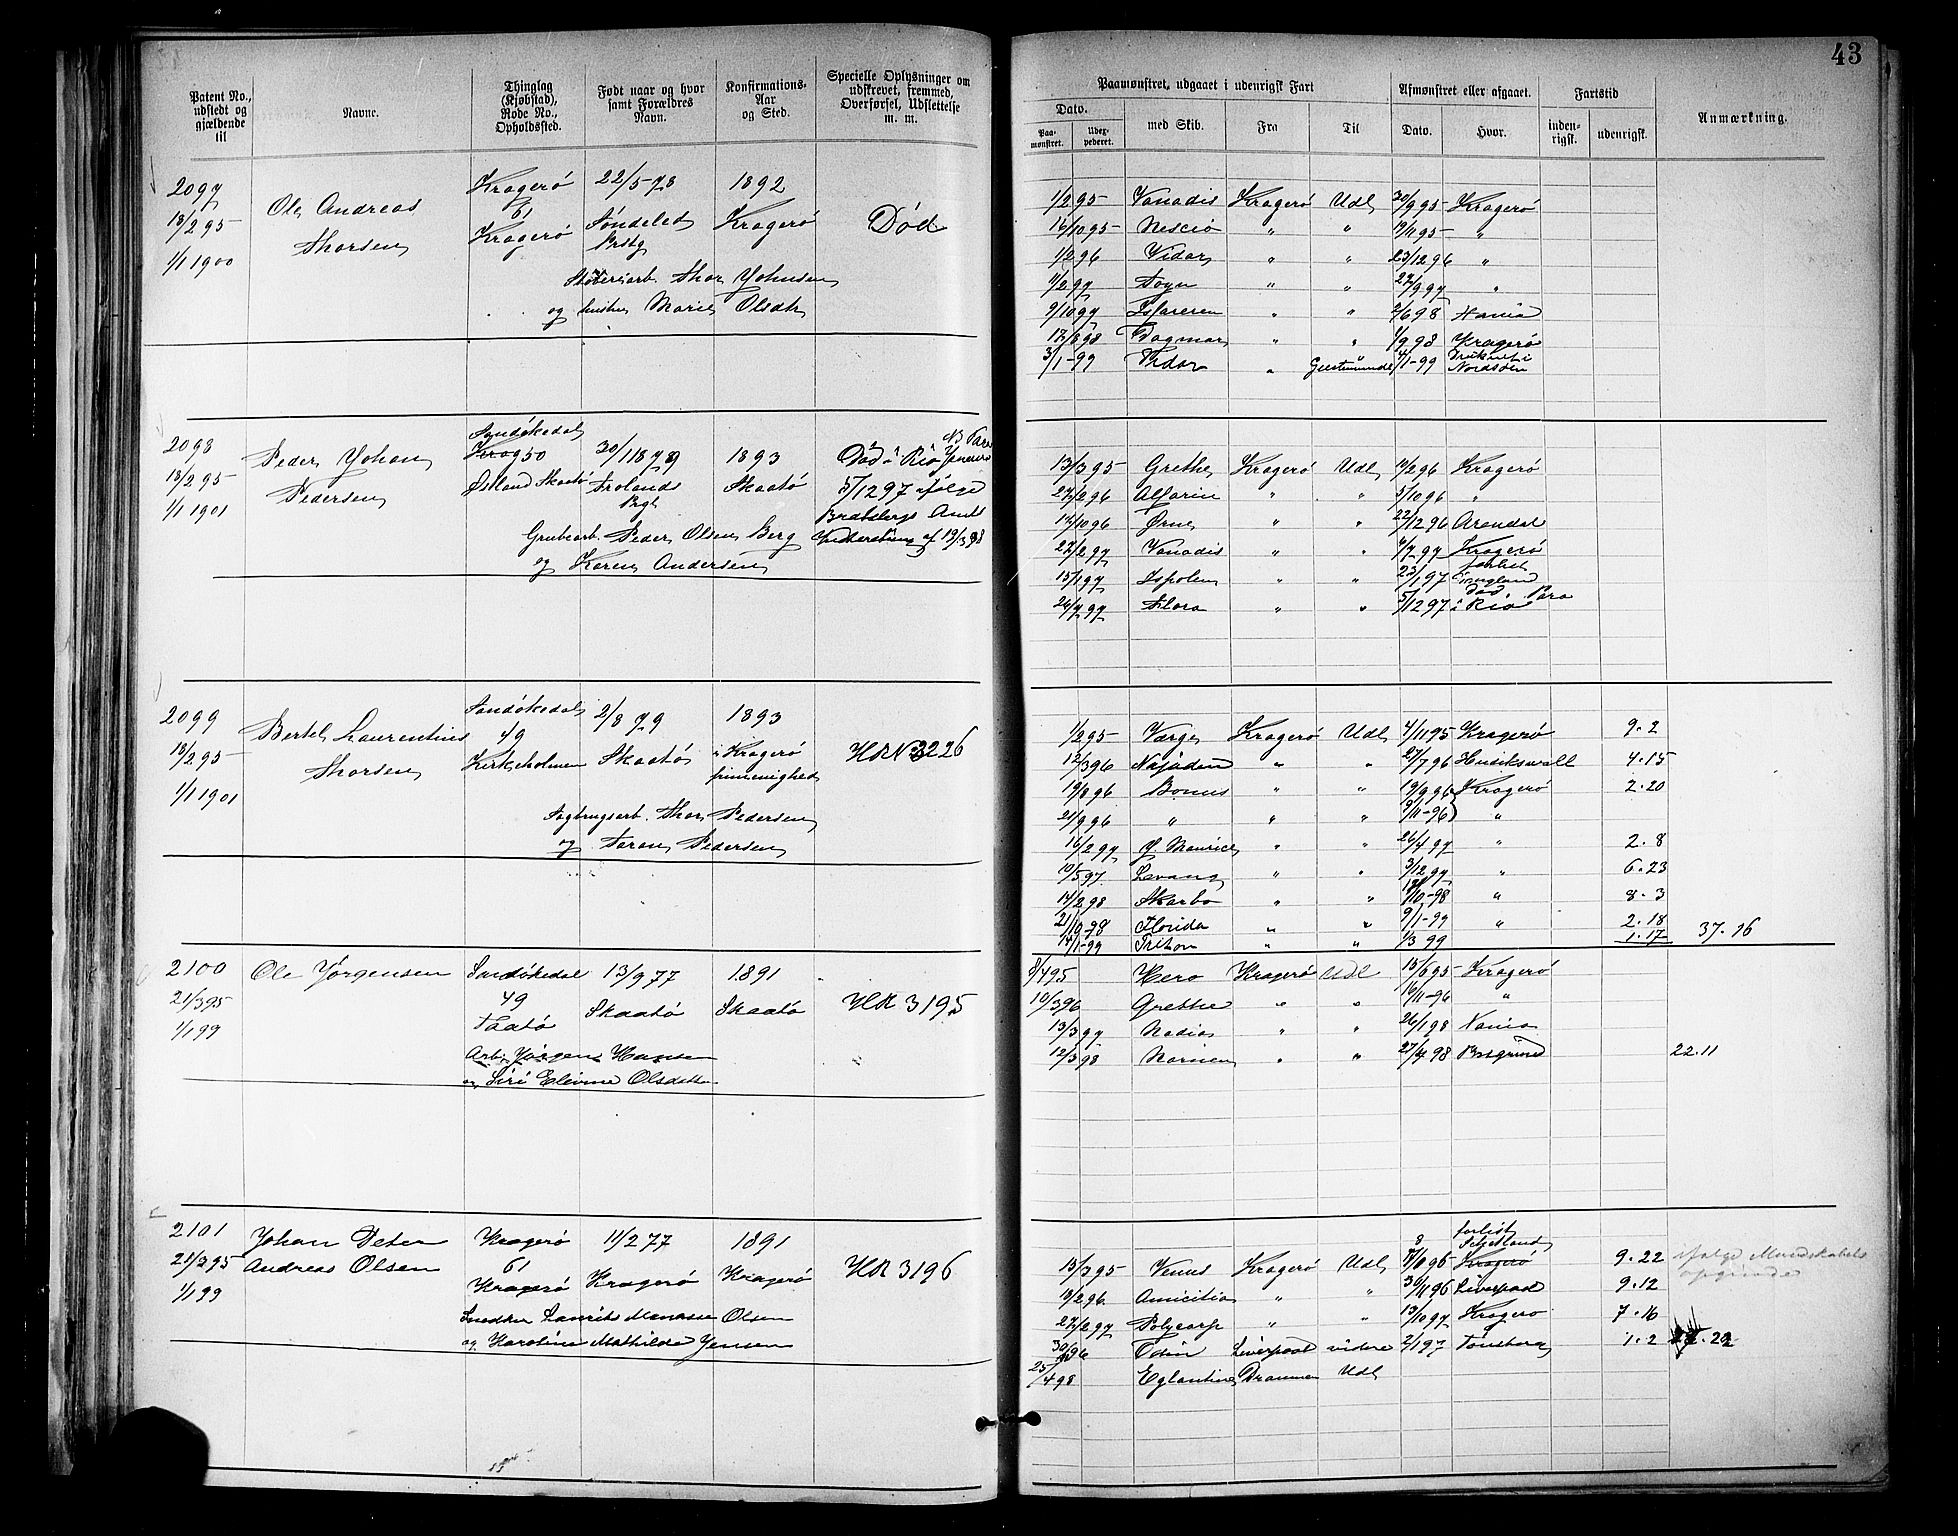 43
Patent No., udstedt og gjældende til
Navne.
Thinglag (Kjøbstad), Rode No., Opholdssted.
Født naar og hvor samt Forældres Navn.
Konfirmations-Aar og Sted.
Specielle Oplysninger om udskrevet, fremmed, Overførsel, Udslettelse m. m.
Paamønstret, udgaaet i udenrigsk Fart
Dato.
Paa-mønstret.
Udex-pederet.
med Skib.
Fra
Til
Afmønstret eller afgaaet.
Dato.
Hvor.
Fartstid
inden-rigsk.
udenrigsk.
Anmærkning.
2097 Kragerø 22/5-78 1892
13/2 95 Ole Andreas 61 Søndeled Kragerø Død
1/1 1900 Thorsen Kragerø Prstg
arb. Thor Johnsen
og hustru Marie Olsdtr
1/2 95 Vanadis Kragerø Udl 20/9 95 Kragerø
16/10 95 Nesciö " " 19/11 95 "
1/2 96 Vidar " " 23/12 96 "
11/2 97 Sogn " " 27/9 97 "
9/10 97 " " 2/6 98
12/8 98 Dagmar " " 1/9 98 Kragerø
3/1-99 Vidar " Geestemünde 4/1-99 Druknet i Nordsøen
2098 Sandøkedal 30/11 8 79 1893 Død i Rio Janeiro
13/2 95 Peder Johan Krag 50 Frolands Skaatø 5/12 97 ifølge
1/1 1901 Pedersen Østland Skaatø Prgt Bratsbergs Amts
Grubearb. Peder Olsen Berg
og Karen Andersen
13/3 95 Grethe Kragerø Udl 11/2 96 Kragerø
27/2 96 Alfarin " " 5/10 96 "
14/10 96 Ørnen " " 22/12 96 Arendal
27/2 97 Vanadis " " 4/7 97 Kragerø
15/1 97 Ispolen " " 23/1 97 forlist i England
26/7 97 Flora " " 5/12 97 død i Rio Para
2099 Sandøkedal 2/8 79 1893
13/2 95 Bertel Laurentius 49 Skaatø i Kragerø HR N 3226
1/1 1901 Thorsen Kirkeholmen frimenighed
Sagbrugsarb. Thor Pedersen
og Taran Pedersen
1/2 95 Varge Kragerø Udl 4/11 95 Kragerø 9.2
12/3 96 Najaden " " 27/7 96 Hudikswall 4.15
19/8 96 Bonus " " 19/9 96 Kragerø 2.20
21/9 96 " " " 9/11-96 "
16/2 97 J. Maurice " " 26/4 97 " 2.8
10/5 97 Levang " " 3/12 97 " 6.23
14/2 98 Skarbo " " 18/10-98 " 8.3
21/10-98 Florida " " 9/1-99 " 2.18
14/1-99 Triton " " 1/3 99 1.17 37.16
2100 Ole Jørgensen Sandøkedal 13/9 77 1891
21/3 95 49 Skaatø Skaatø HR 3195
1/1 99 Taatø
Arb. Jørgen Hansen
og Siri Elevine Olsdatter
8/4 95 Hero Kragerø Udl 15/6 95 Kragerø
10/3 96 Grethe " " 16/11-96 "
13/3 97 Nadia " " 26/1 98
12/3 98 Nornen " " 27/4 98 Porsgrund 22.11
2101 Johan Peter Kragerø 11/2 77 1891
21/3 95 Andreas Olsen 61 Kragerø Kragerø HR 3196
1/1 99 Kragerø
Snedker Laurits Manasse Olsen
og Karoline Mathilde Jensen
forlist Schetland
13/3 95 Venus Kragerø Udl Kragerø 9.22 ifølge Mandskabets opgivende
13/2 96 Amicitia " " 30/11 96 Liverpool 9.12
27/2 97 Polycarp " 13/10 97 Kragerø 7.16
Odin Liverpool videre 2/1 97 Tønsberg 1.2
25/4 98 Eglantine Drammen Udl